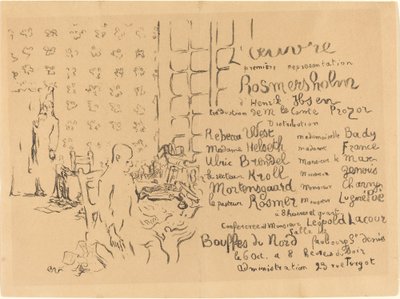 L'œuvre
première représentation
Rosmersholm
d'Henrik Ibsen
traduction de M. le Comte Prozor
Distribution
Rebecca West mademoiselle Bady
Madame Helseth madame France
Ulric Brendel Monsieur
le recteur Kroll Monsieur
Mortensgaard Monsieur Charny
le pasteur Rosmer Monsieur Lugné Poe
à 8 heures du grand
Conférence de Monsieur Léopold Lacour
Salle des
Bouffes du Nord faubourg St Denis
le 6 oct. à 8 heures du Soir
administration 23 rue Turgot